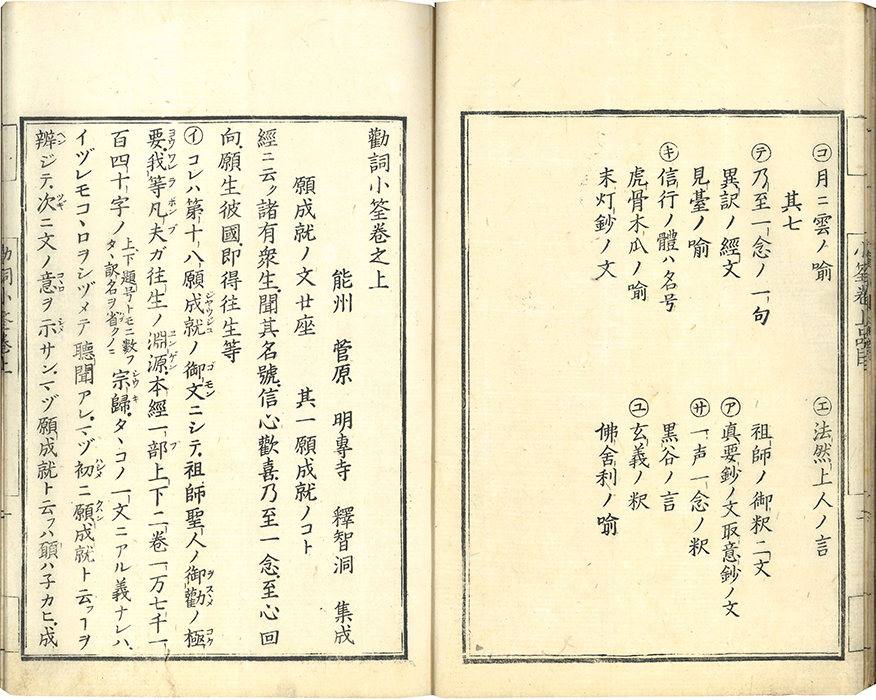 ㋙月ニ雲ノ喩
㋓法然上人ノ言
其七
㋢乃至一念ノ一句
祖師ノ御釈二文
異訳ノ經文
㋐真要鈔ノ文取意鈔ノ文
見臺ノ喩
㋚一声一念ノ釈
㋖信行ノ體ハ名号
黒谷ノ言
虎骨木瓜ノ喩
㋴玄義ノ釈
末灯鈔ノ文
佛舎利ノ喩
勸詞小筌卷之上
能州 菅原 明專寺 釋智洞 集成
願成就ノ文廿座 其一願成就ノコト
經ニ云ク諸有衆生聞其名號信心歡喜乃至一念至心回
向願生彼國即得往生等
㋑コレハ第十八願成就ノ御文ニシテ祖師聖人ノ御勸ノ極
要我等凡夫ガ往生ノ淵源本經一部上下二卷一万七千一
百四十字ノ上下題号トモニ數フタヽ訳名ヲ省クノミ宗歸タヽコノ一文ニアル義ナレハ
イヅレモコヽロヲシヅメテ聽聞アレマヅ初ニ願成就ト云フヿヲ
辨ジテ次ニ文ノ意ヲ示サンマヅ願成就ト云フハ願ハ子カヒ成